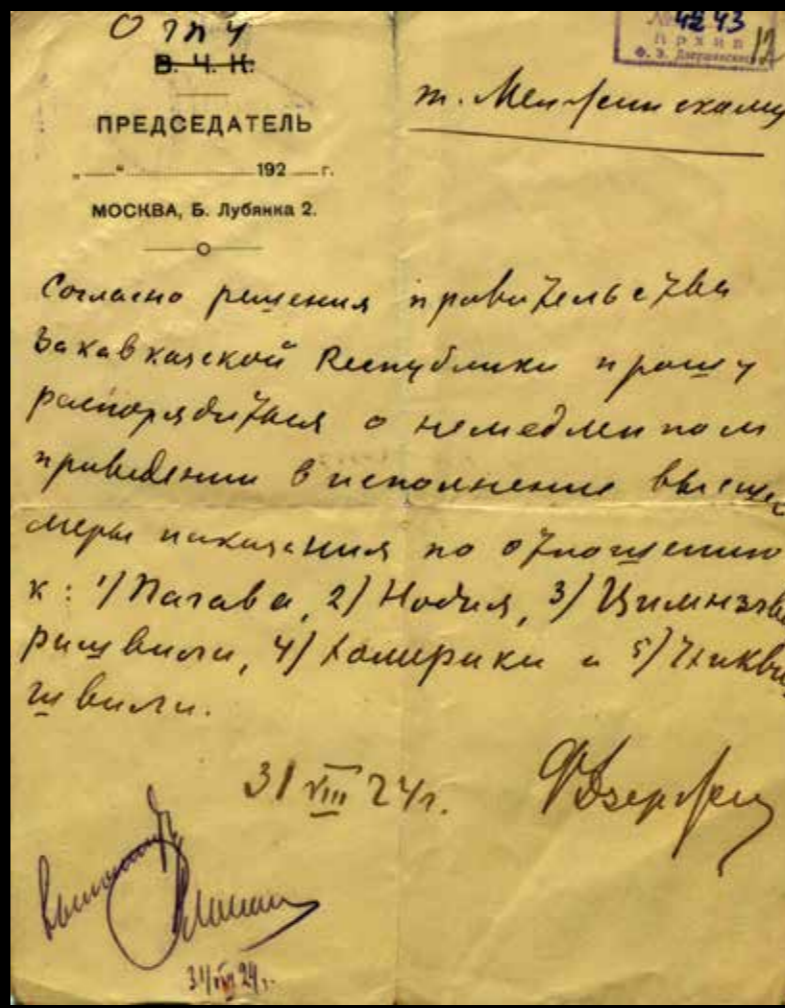 ОГПУ
В. Ч. К.
ПРЕДСЕДАТЕЛЬ
„......“ .................. 192 ..... г.
МОСКВА, Б. Лубянка 2.
№ 4243
Архив
Ф. Э. Дзержинского
12
т. Менжинскому
Согласно решения правительства
Закавказской Республики прошу
распорядиться о немедленном
приведении в исполнение высшей
меры наказания по отношению
к: 1/ Пагава, 2/ Нодия, 3/ Цинамзгв
ришвили, 4/ Хомерики и 5/ Чхикви
швили.
31 VIII 24г.
ФДзержин
31/VIII 24г.